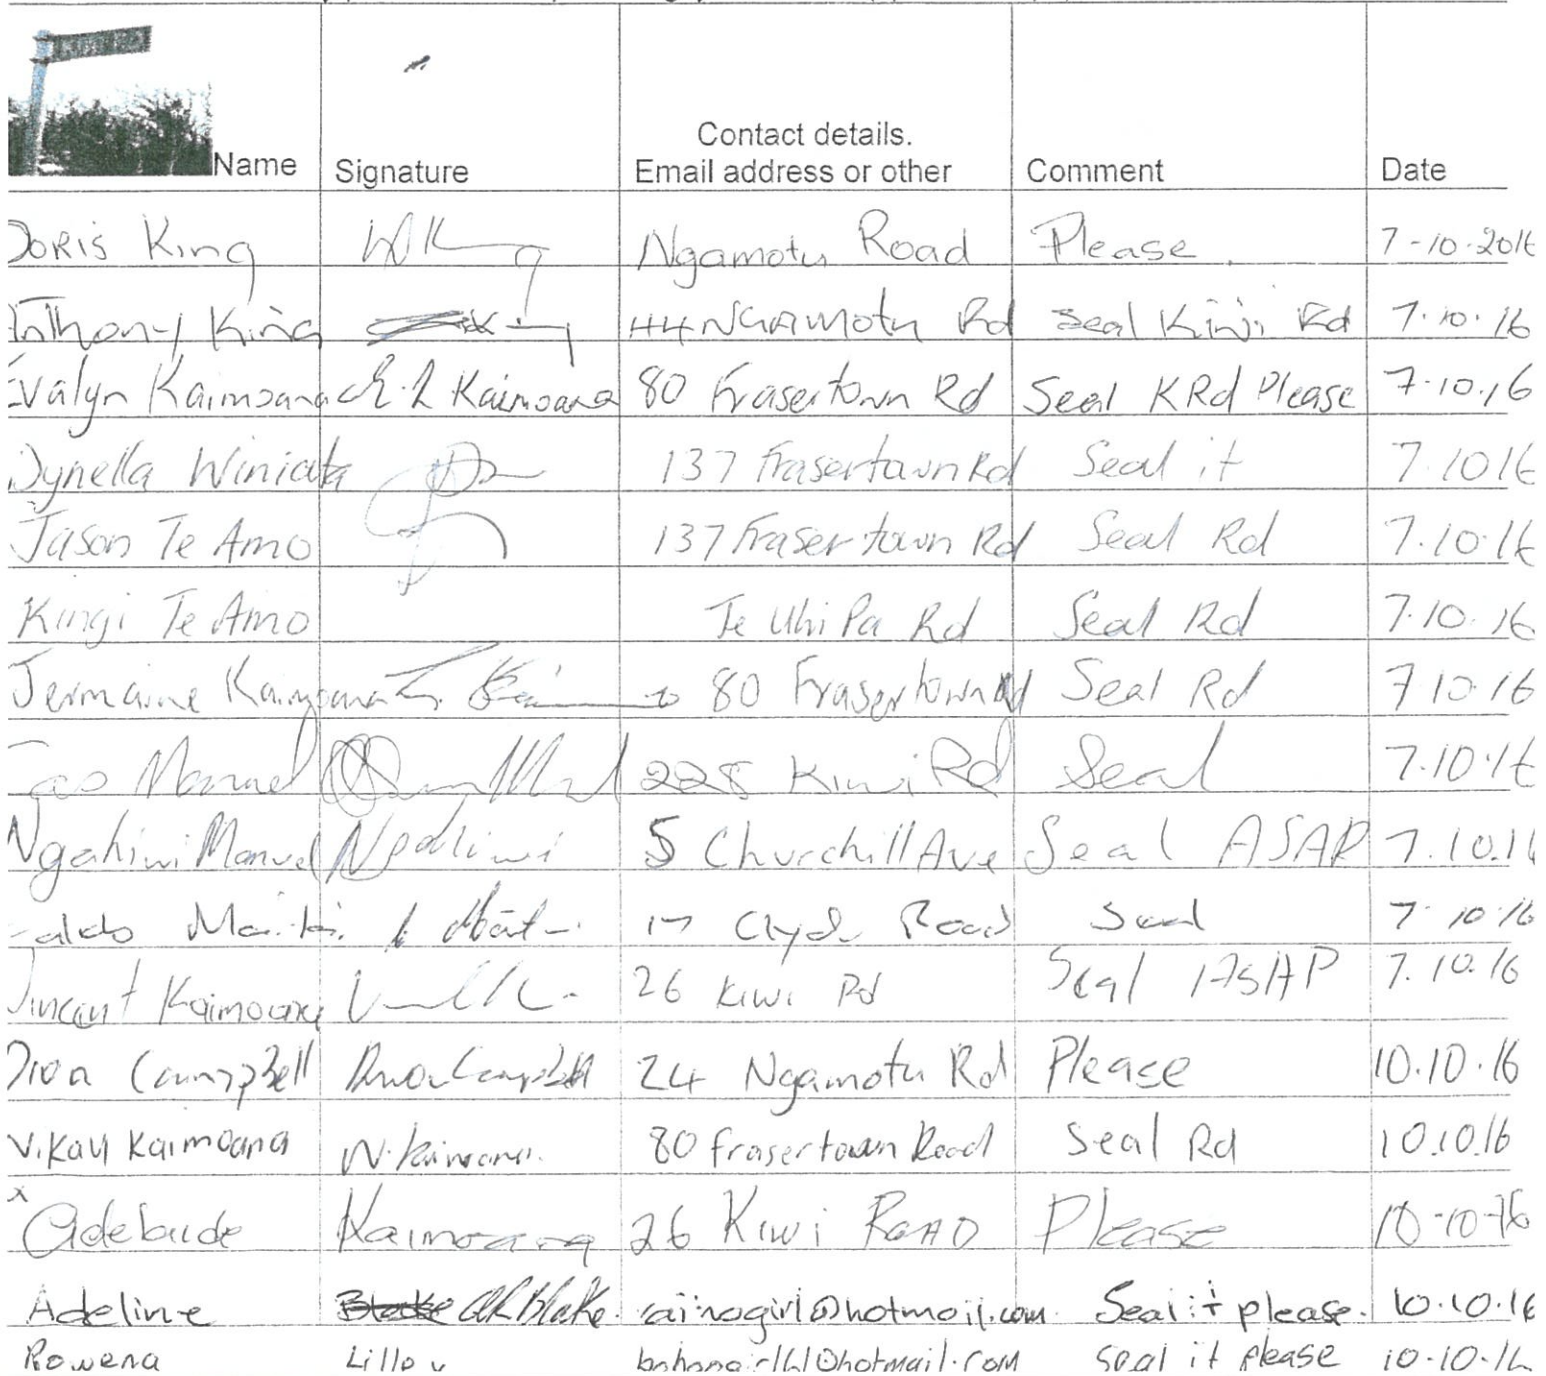 KIWI RD
Contact details.
Name Signature Email address or other Comment Date
Doris King Ngamotu Road Please 7-10-2016
Anthony King 44 Ngamotu Rd Seal Kiwi Rd 7.10.16
Evalyn Kaimoana E.R Kaimoana 80 Frasertown Rd Seal K Rd Please 7.10.16
Dynella Winiata 137 Frasertown Rd Seal it 7.10 16
Jason Te Amo 137 Frasertown Rd Seal Rd 7.10.16
Kingi Te Amo Te Uhi Pa Rd Seal Rd 7.10.16
Jermaine Kaimoana 80 Frasertown Rd Seal Rd 7.10.16
Manuel 228 Kiwi Rd Seal 7.10.16
Ngahiwi Manuel Ngahiwi 5 Churchill Ave Seal ASAP 7.10.16
17 Clyde Road Seal 7.10.16
Vincent Kaimoana 26 Kiwi Rd Seal ASAP 7.10.16
Dion Campbell Dion Campbell 24 Ngamotu Rd Please 10.10.16
V.Kay Kaimoana 80 Frasertown Road Seal Rd 10.10.16
x Adelaide Kaimoana 26 Kiwi Road Please 10-10-16
Adeline Blake Blake Seal it please. 10.10.16
Rowena seal it please 10-10-16